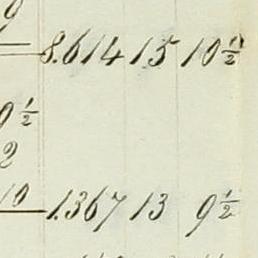 9
8.614 15 10½
0½
2
10 1.367 13 9½